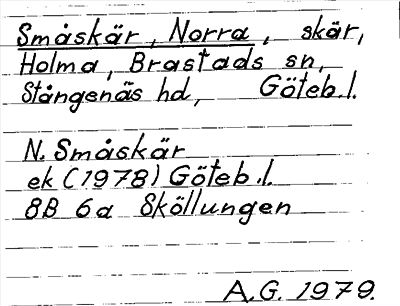 Småskär, Norra, skär,
Holma, Brastads sn,
Stångenäs hd, Göteb.l.
N. Småskär
ek (1978) Göteb.l.
8B 6a Sköllungen
A.G. 1979.